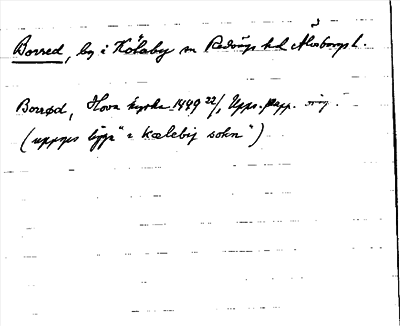 Borred, by i Kölaby sn Redvägs hd Älvsborgs l.
Borrød, Hova kyrka 1449 22/1 Upps. papp. orig.
(uppges ligga "i Kælebij sokn")